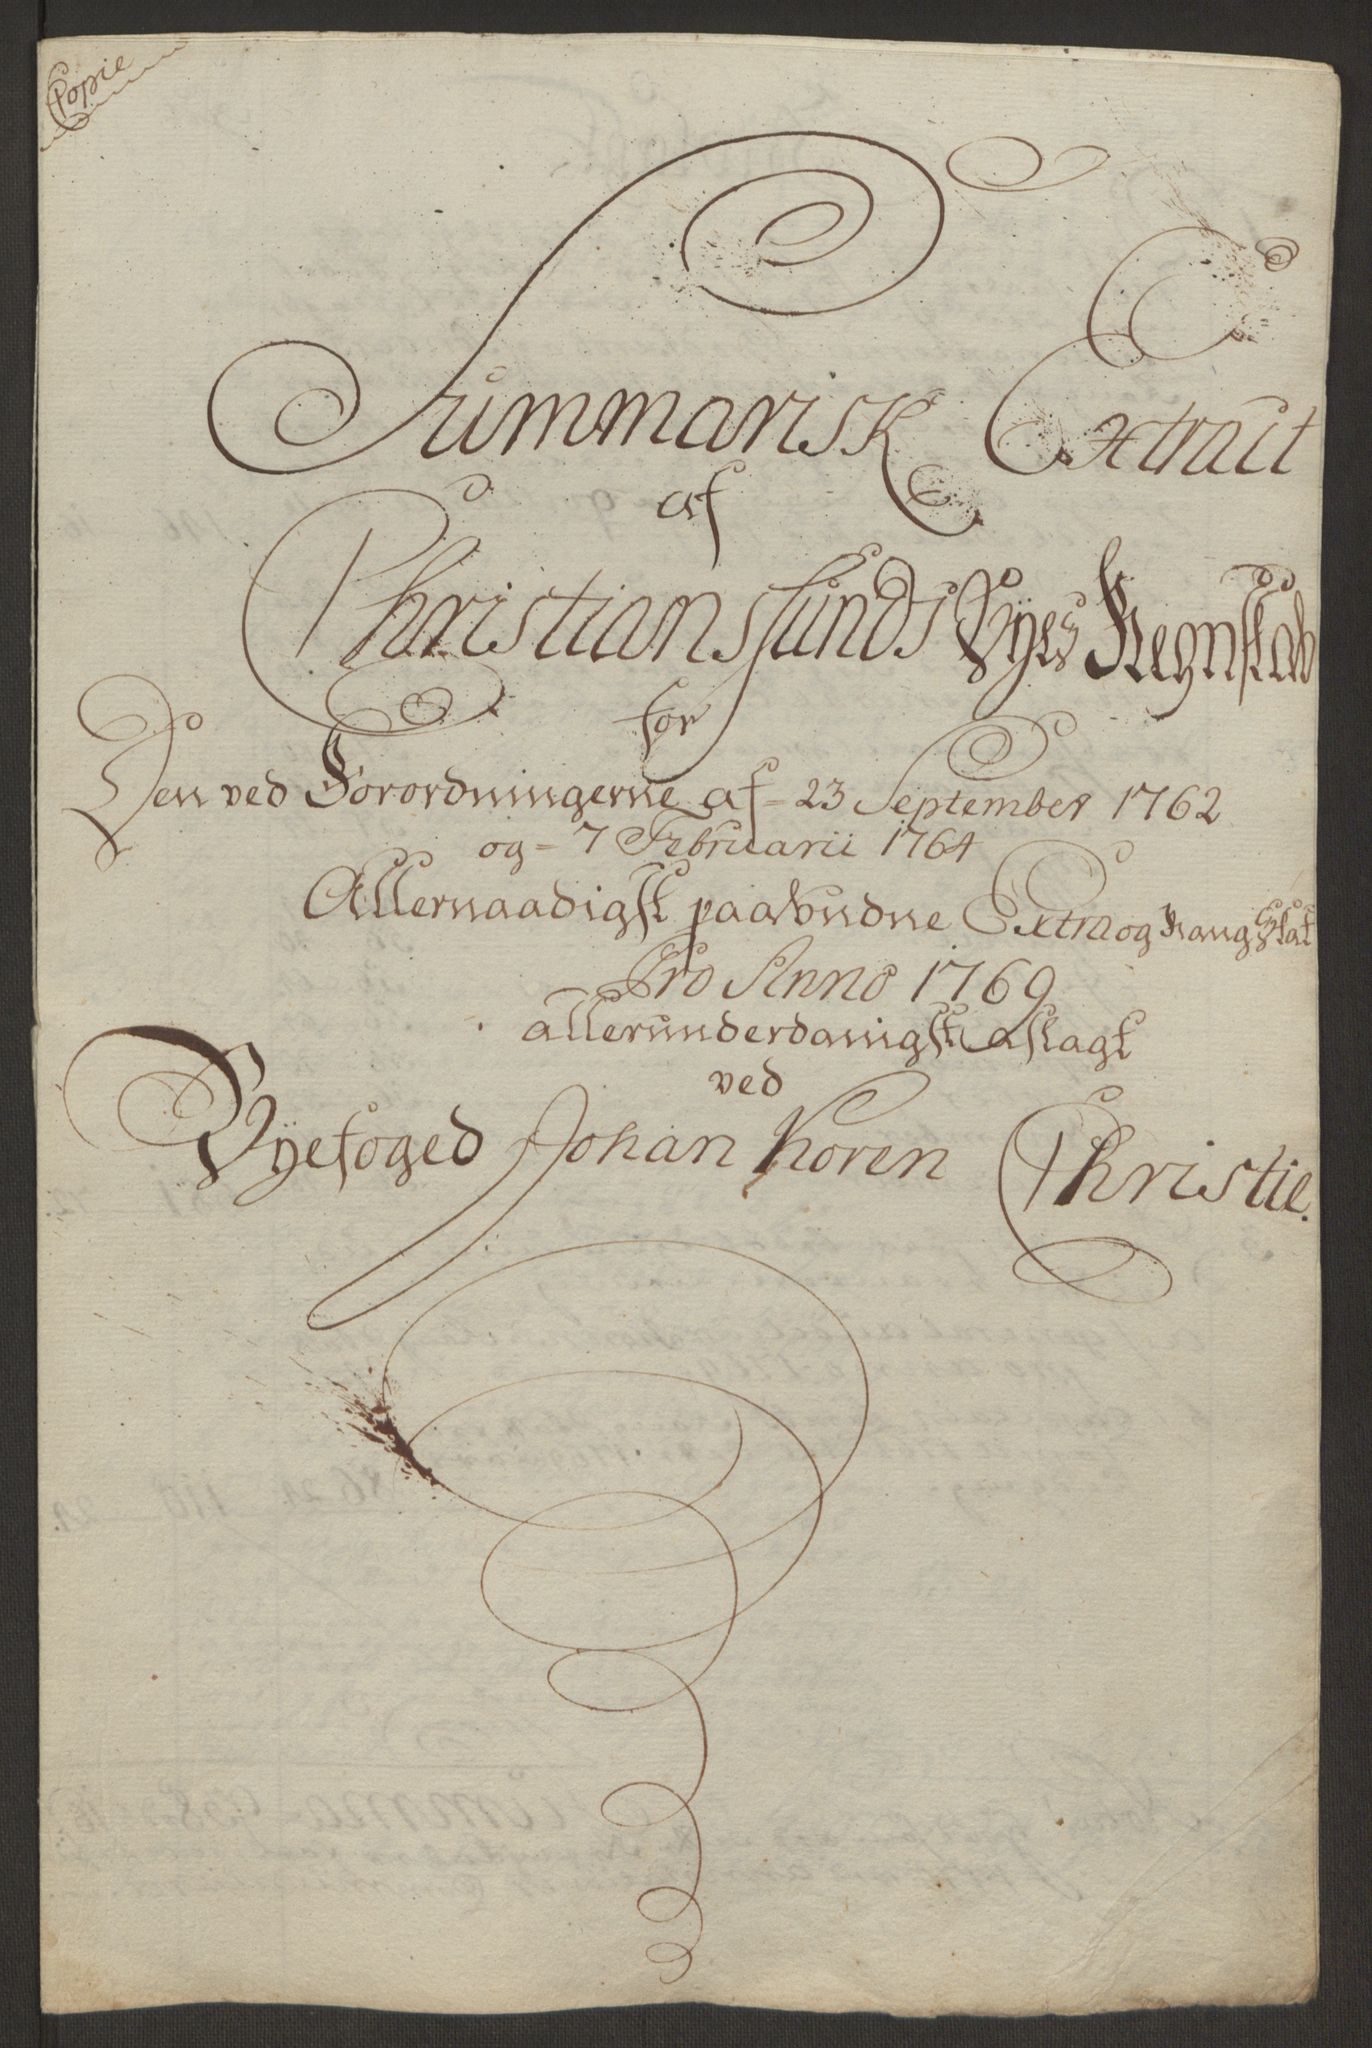 Copie
Summarisk Extract
af
Christiansunds Byes Regnskab
for
Den ved Forordningerne af 23 September 1762
og 7 Februarii 1764
Allernaadigst paabudne Extra og Rang Skat
Pro Anno 1769
allerunderdanigst aflagt
ved
Byefoged Johan Koren Christie.